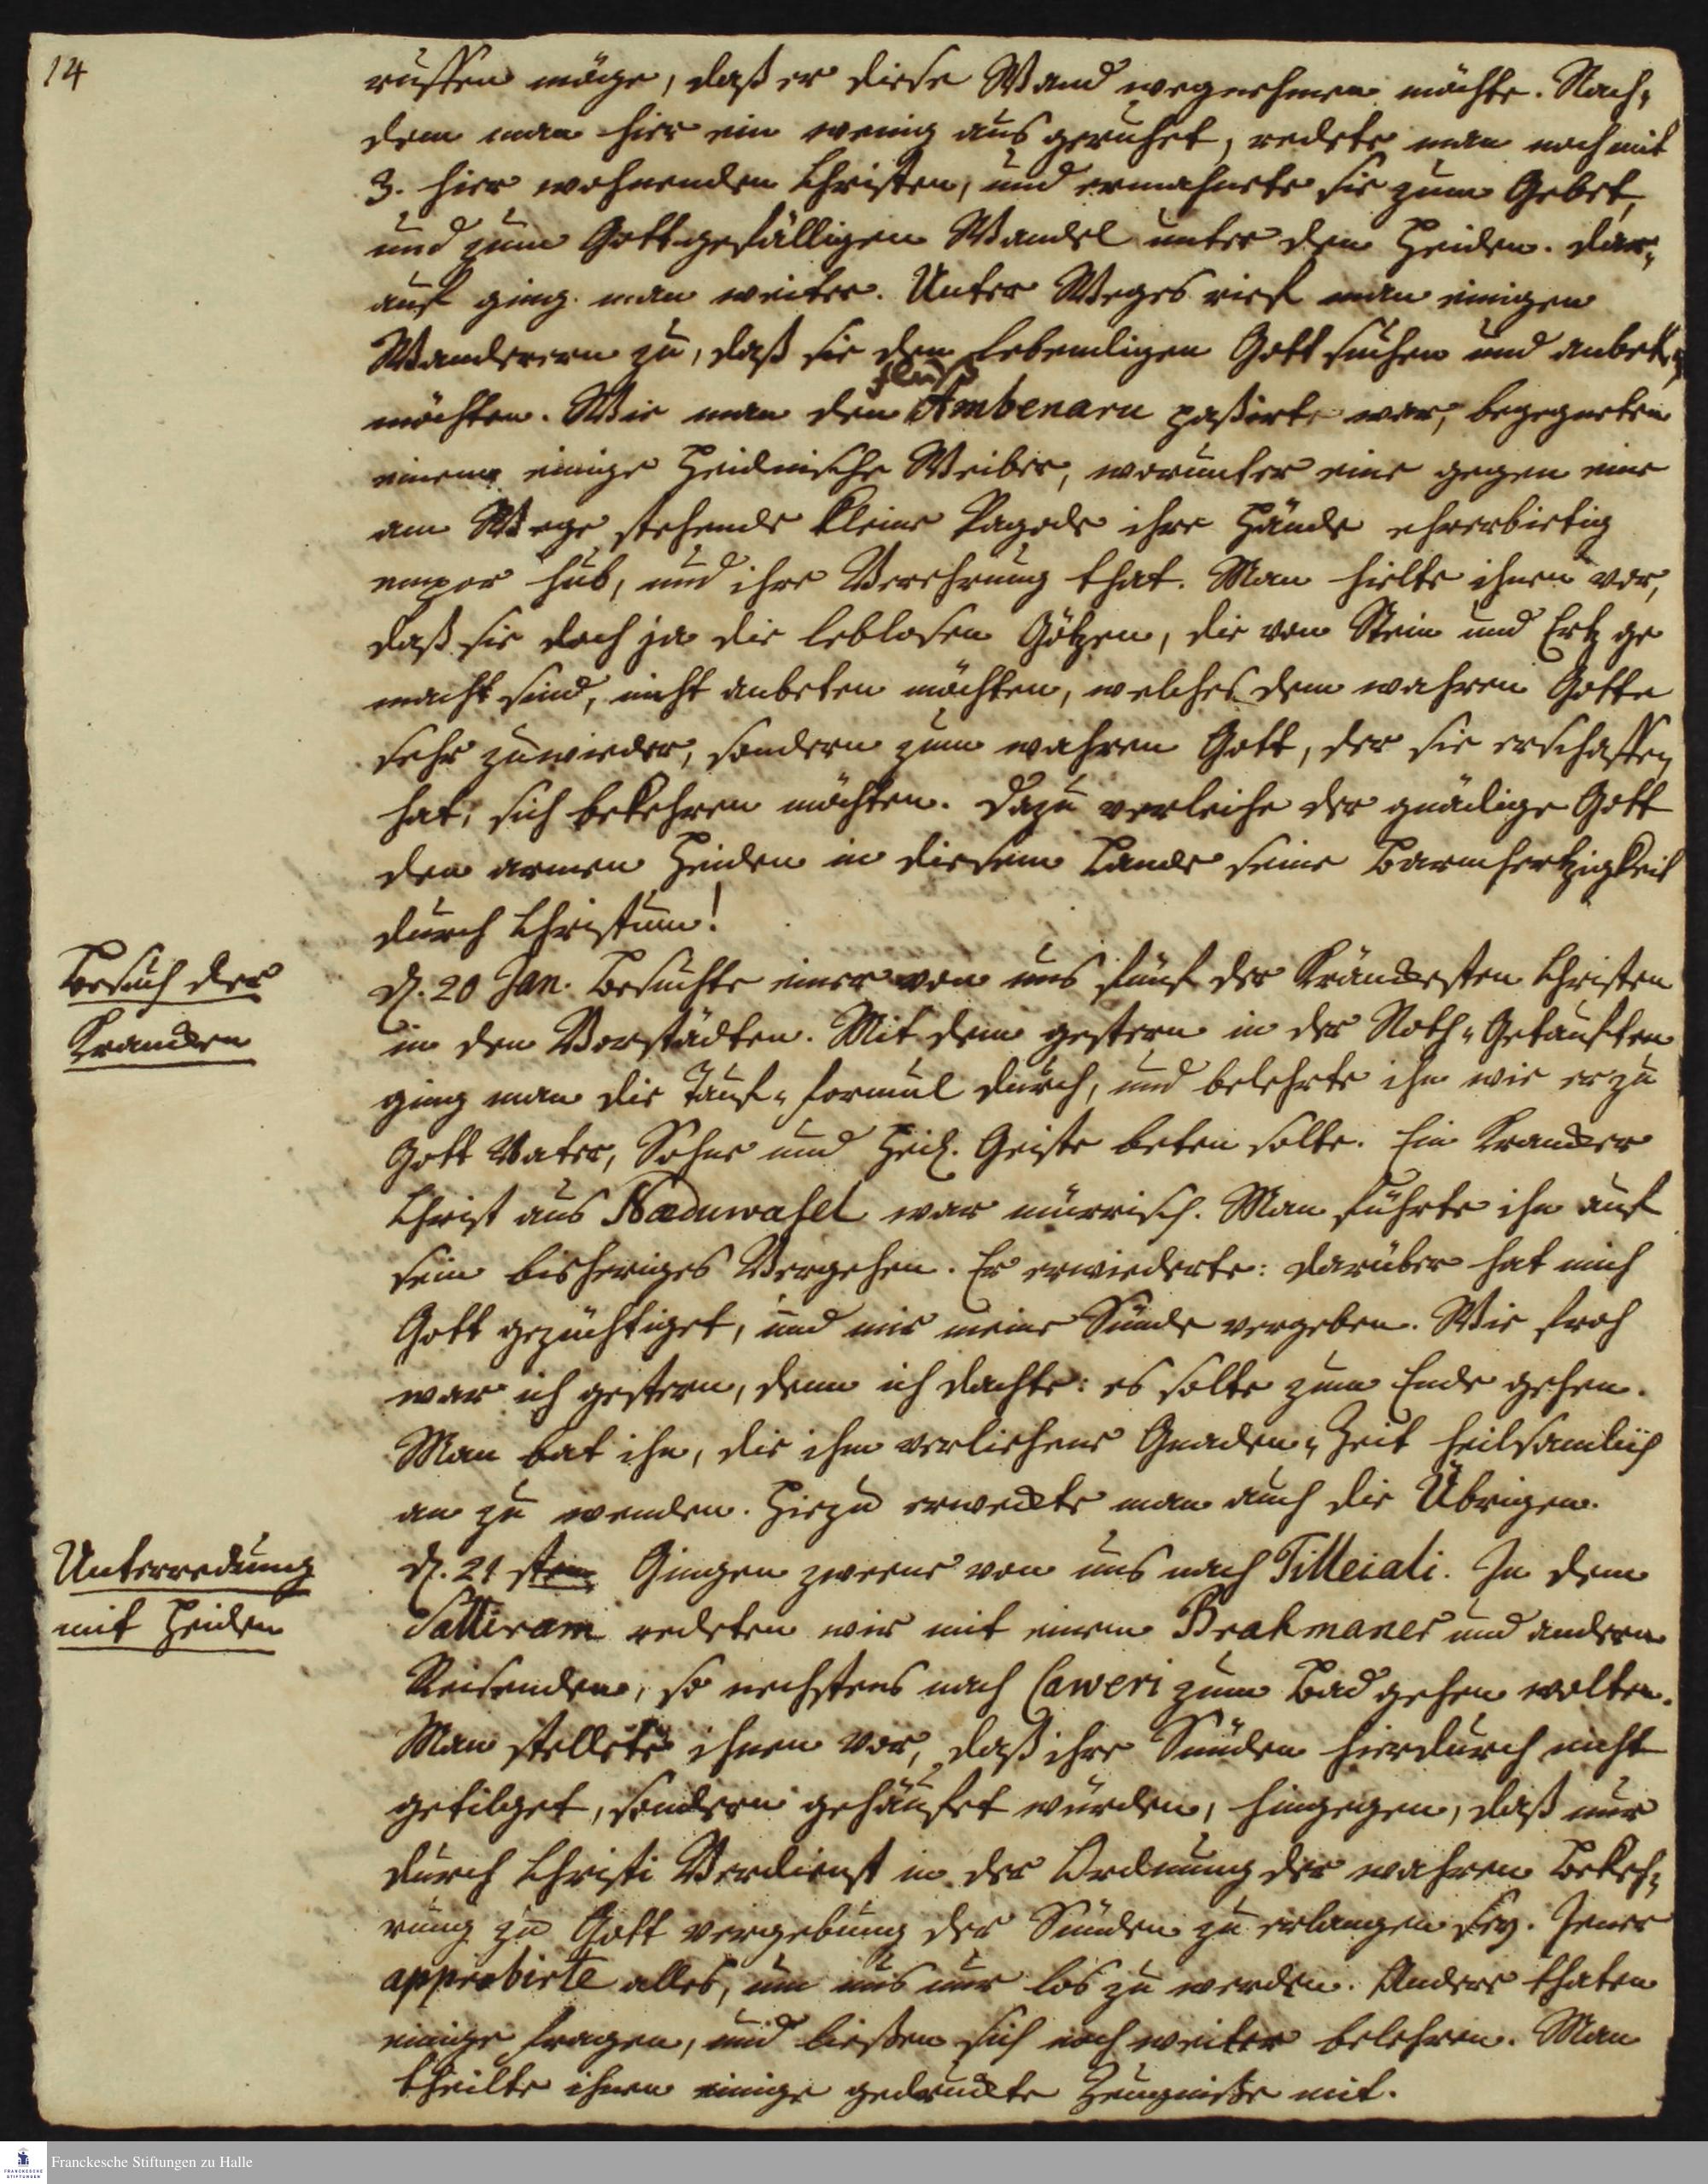 14
ruffen möge, daß er diese Wand wegnehmen möchte. Nach-
dem man hier ein wenig ausgeruhet, redete man noch mit
3. hier wohnenden Christen, und ermahnete sie zum Gebet,
und zum Gottgefälligen Wandel unter den Heiden. Dar-
auf ging man weiter. Unter Weges rief man einigen
Wanderern zu, daß sie den lebendigen Gott suchen und anbeten
möchten. Wie man den Fluß Ambenaru paßirt war, begegneten
einem einige Heidnische Weiber, worunter eine gegen eine
am Wege stehende kleine Pagode ihre Hände ehrerbietig
empor hub, und ihre Verehrung that. Man hielte ihnen vor,
daß sie doch ja die leblosen Götzen, die von Stein und Ertz ge
macht sind, nicht anbeten möchten, welches dem wahren Gotte
sehr zuwieder, sondern zum wahren Gott, der sie erschaffen
hat, sich bekehren möchten. Dazu verleihe der gnädige Gott
den armen Heiden in diesem Lande seine Barmhertzigkeit
durch Christum!
Besuch der
Krancken
d. 20 Jan. Besuchte einer von uns fünf der Kränckesten Christen
in den Vorstädten. Mit dem gestern in der Noth-Getauften
ging man die Tauf-formul durch, und belehrte ihn wie er zu
Gott Vater, Sohne und Heil. Geiste beten solte. Ein Krancker
Christ aus Naeduwasel war mürrisch. Man führte ihn auf
sein bisheriges Vergehen. Er erwiederte: darüber hat mich
Gott gezüchtiget, und mir meine Sünde vergeben. Wie froh
war ich gestern, denn ich dachte: es solte zum Ende gehen.
Man bat ihn, die ihm verliehene Gnaden-Zeit heilsamlich
an zu wenden. Hiezu erweckte man auch die Übrigen.
Unterredung
mit Heiden
d. 21 sten Gingen zweene von uns nach Tilleiali. In dem
Sattiram redeten wir mit einem Brahmanes und andern
Reisenden, so nechstens nach Caweri zum Bad gehen wolten.
Man stellete ihnen vor, daß ihre Sünden hierdurch nicht
getilget, sondern gehäufet würden, hingegen, daß nur
durch Christi Verdienst in der Ordnung der wahren Bekeh-
rung zu Gott vergebung der Sünden zu erlangen sey. Jener
approbirte alles, um uns nur los zu werden. Andere thaten
einige fragen, und ließen sich noch weiter belehren. Man
theilte ihnen einige gedruckte Zeugniße mit.
Franckesche Stiftungen zu Halle